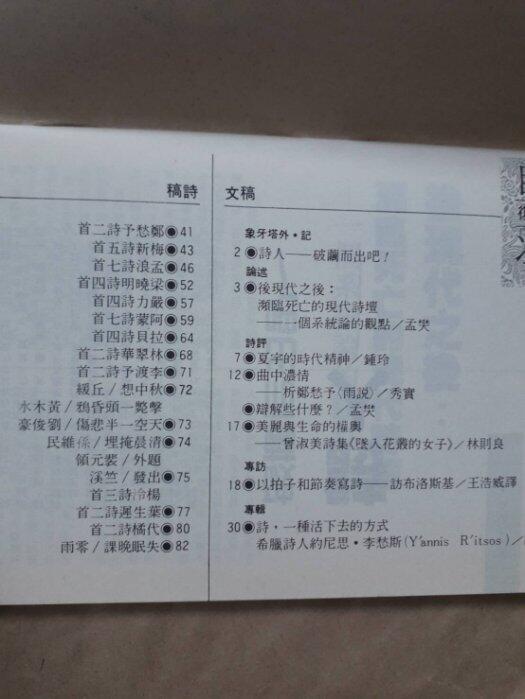 文稿
象牙塔外・記
2●詩人——破繭而出吧！
論述
3●後現代之後：
瀕臨死亡的現代詩壇
——一個系統論的觀點／孟樊
詩評
7●夏宇的時代精神／鍾玲
12●曲中濃情
——析鄭愁予〈雨說〉／秀實
●辯解些什麼？／孟樊
17●美麗與生命的權輿
——曾淑美詩集《墜入花叢的女子》／林則良
專訪
18●以拍子和節奏寫詩——訪布洛斯基／王浩威譯
專輯
30●詩，一種活下去的方式
希臘詩人約尼思・李愁斯(Y'annis R'itsos)／
詩稿
41●鄭愁予詩二首
43●梅新詩五首
46●孟浪詩七首
52●梁曉明詩四首
57●嚴力詩四首
59●阿蒙詩七首
64●拉貝詩四首
68●林翠華詩二首
71●李渡予詩二首
72●秋中想／丘緩
擊斃一頭昏鴉／黃木水
73●天空一半悲傷／劉俊豪
74●清晨掩埋／孫維民
題外／裴元領
75●出發／竺溪
楊泠詩三首
77●葉生遲詩二首
80●代橘詩二首
82●失眠晚課／零雨